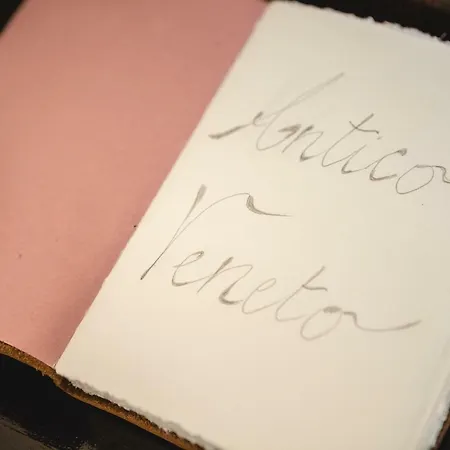 Antico
Veneto